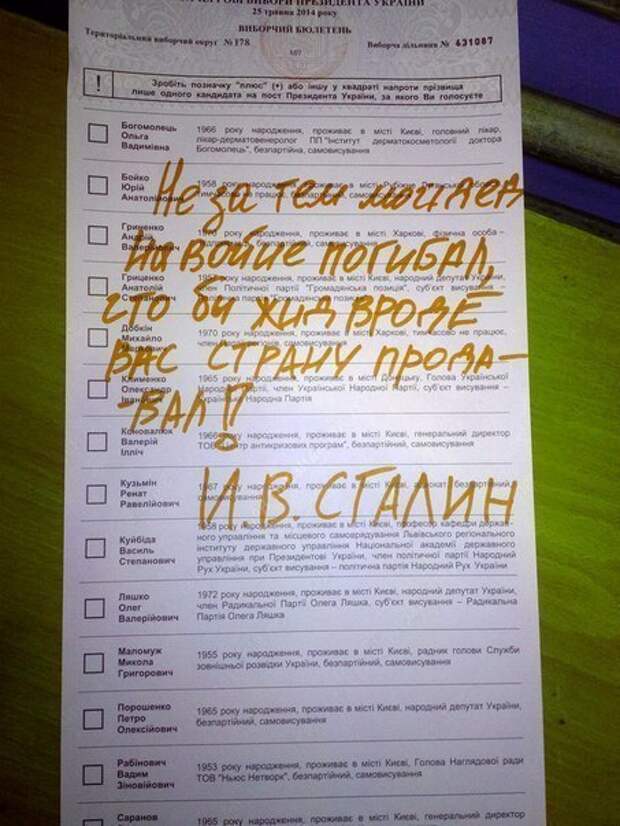 ВИБОРИ ПРЕЗИДЕНТА УКРАЇНИ
25 травня 2014 року
ВИБОРЧИЙ БЮЛЕТЕНЬ
Територіальний виборчий округ №178
Виборча дільниця № 631087
! Зробіть позначку "плюс" (+) або іншу у квадраті напроти прізвища
лише одного кандидата на пост Президента України, за якого Ви голосуєте
Богомолець
Ольга
Вадимівна
1966 року народження, проживає в місті Києві, головний лікар,
лікар-дерматовенеролог ПП "Інститут дерматокосметології доктора
Богомолець", безпартійна, самовисування
Бойко
Юрій
Анатолійович
1958 року народження, проживає в місті Рубіжне
самовисування
Гриненко
Андрій
Валерійович
1970 року народження, проживає в місті Харкові, фізична особа –
самовисування
Гриценко
Анатолій
Степанович
народження, проживає в місті Києві, народний депутат України,
член Політичної партії "Громадянська позиція", суб'єкт висування –
партія "Громадянська позиція"
Добкін
Михайло
Маркович
1970 року народження, проживає в місті Харкові, тимчасово не працює,
член Партії регіонів, самовисування
Клименко
Олександр
Іванович
1965 року народження, проживає в місті Донецьку, Голова Української
Народної Партії, член Української Народної Партії, суб'єкт висування –
Українська Народна Партія
Коновалюк
Валерій
Ілліч
1966 року народження, проживає в місті Києві, генеральний директор
ТОВ "Центр антикризових програм", безпартійний, самовисування
Кузьмін
Ренат
Равелійович
1967 року народження, проживає в місті Києві, адвокат, безпартійний,
самовисування
Куйбіда
Василь
Степанович
1958 року народження, проживає в місті Києві, професор кафедри держав-
ного управління та місцевого самоврядування Львівського регіонального
інституту державного управління Національної академії державного
управління при Президентові України, член політичної партії Народний
Рух України, суб'єкт висування – політична партія Народний Рух України
Ляшко
Олег
Валерійович
1972 року народження, проживає в місті Києві, народний депутат України,
член Радикальної Партії Олега Ляшка, суб'єкт висування – Радикальна
Партія Олега Ляшка
Маломуж
Микола
Григорович
1955 року народження, проживає в місті Києві, радник голови Служби
зовнішньої розвідки України, безпартійний, самовисування
Порошенко
Петро
Олексійович
1965 року народження, проживає в місті Києві, народний депутат України,
безпартійний, самовисування
Рабінович
Вадим
Зіновійович
1953 року народження, проживає в місті Києві, Голова Наглядової ради
ТОВ "Ньюс Нетворк", безпартійний, самовисування
Саранов
1965 року народження, проживає в місті Києві, генеральний директор
Не за тем мой дед
на войне погибал,
что би жид вроде
вас страну прода-
-вал!
И.В. СТАЛИН